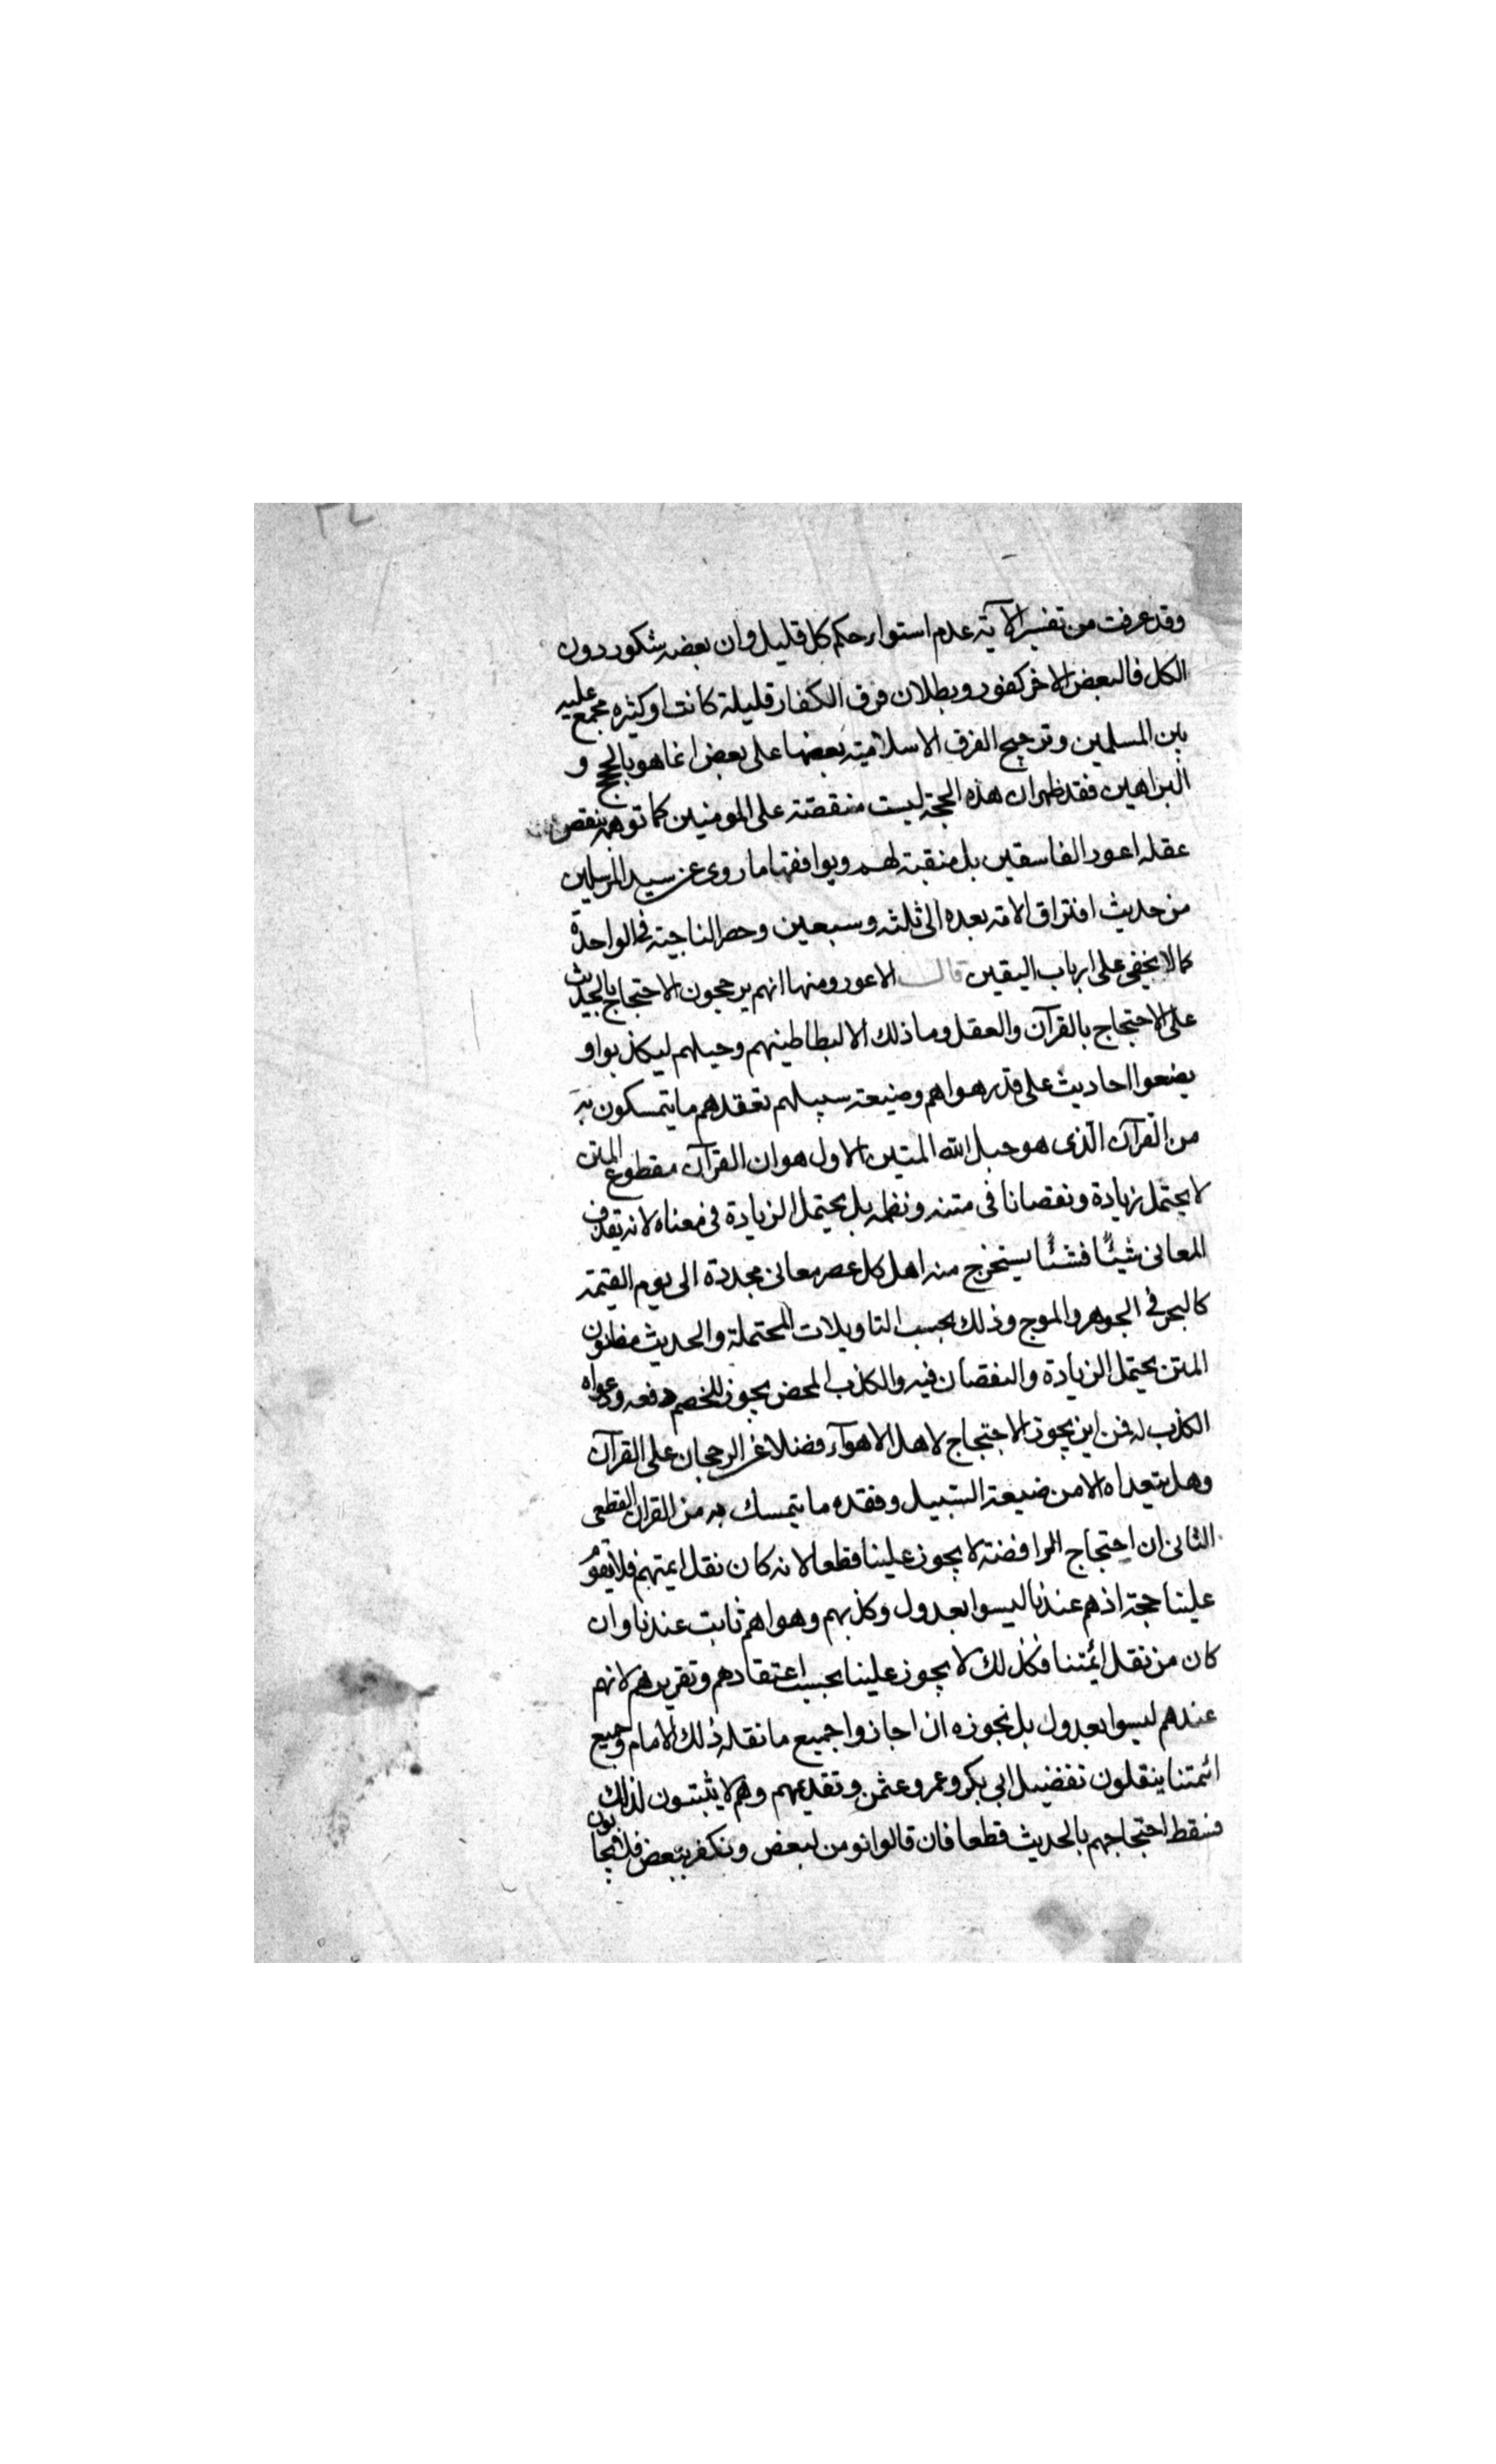 وقد عرفت من تفسير الآية عدم استواء حكم كل قليل وان بعضه شكور دون
الكل فالبعض الاخر كفور وبطلان فرق الكفار قليلة كانت او كثيرة مجمع عليه
بين المسلمين وترجيح الفرق الاسلامية بعضها على بعض انما هو بالحجج و
البراهين فقد ظهر ان هذه الحجة ليست منقصة على المومنين كما توهمه بنقص
عقله اعور الفاسقين بل منقبة لهم ويوافقها ما روى عن سيد المرسلين
من حديث افتراق الامة بعده الى ثلثه وسبعين وحصر الناجية في الواحدة
كما لا يخفى على ارباب اليقين قال الاعور ومنها انهم يرجحون الاحتجاج بالحديث
على الاحتجاج بالقرآن والعقل وما ذلك الا لبطاطينهم وحيلهم ليكذبوا و
يضعوا احاديث على قدر هواهم وضيعة سبيلهم تعقدهم ما يتمسكون به
من القرآن الذى هو حبل الله المتين الاول هو ان القرآن مقطوع المتن
لا يحتمل زيادة ونقصانا فى متنه ونظمه بل يحتمل الزيادة فى معناه لانه يقذف
المعانى شيئا فشئا يستخرج منه اهل كل عصر معانى مجددة الى يوم القيمة
كالبحر في الجوهر والموج وذلك بحسب التاويلات المحتملة والحديث مظنون
المتن يحتمل الزيادة والنقصان فيه والكذب المحض يجوز للخصم دفعه ودعواه
الكذب له فمن اين يجوز الاحتجاج لاهل الاهوآء فضلا عن الرجحان على القرآن
وهل يتعداه الا من ضيعة السبيل وفقده ما يتمسك به من القران القطعى
الثانى ان احتجاج الرافضة لا يجوز علينا قطعا لانه كان نقل ايمتهم فلا تقوم
علينا حجة اذ هم عندنا ليسوا بعدول وكذبهم وهواهم ثابت عندنا وان
كان من نقل ائمتنا فكذلك لا يجوز علينا بحسب اعتقادهم وتقريرهم لانهم
عندهم ليسوا بعدول بل نجوزه ان اجازوا جميع ما نقله ذلك الامام وجميع
ائمتنا ينقلون تفضيل ابى بكر وعمر وعثمن وتقديمهم وهم لا يثبتون لذلك
فسقط احتجاجهم بالحديث قطعا فان قالوا نومن لبعض ونكفر ببعض فلا يجابون